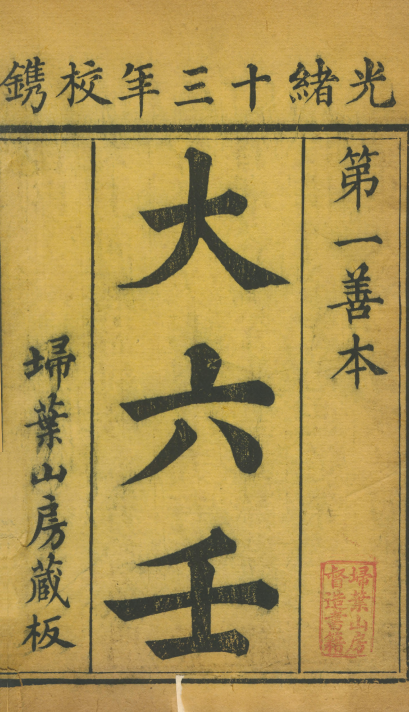 光緒十三年校鐫
第一善本
大六壬
埽葉山房藏板
埽葉山房
督造書籍